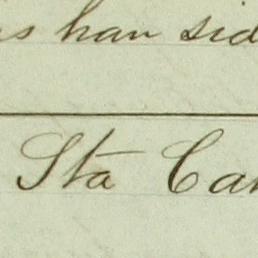 s han sid
Sta Ca